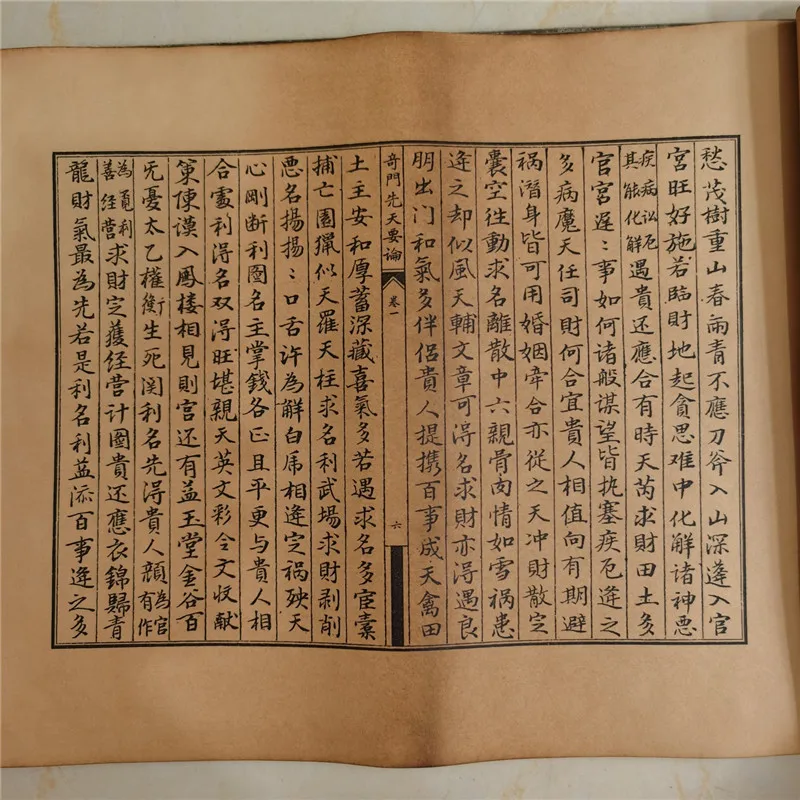 愁茂樹重山春雨青不應刀斧入山深蓬入官
宮旺好施若臨財地起貪思难中化解諸神悪
疾病訟厄其能化解遇貴还應合有時天芮求財田土多
官宮遲：事如何諸般謀望皆执塞疾厄逄之
多病魔天任司財何合宜貴人相值向有期避
祸潛身皆可用婚姻牵合亦從之天冲財散定
囊空徃動求名離散中六親骨肉情如雪祸患
逄之却似風天輔文章可淂名求財亦淂遇良
朋出门和氣多伴侣貴人提携百事成天禽田
奇門先天要論 卷一 六
土主安和厚蓄深藏喜氣多若遇求名多宦橐
捕亡圍獵似天羅天柱求名利武場求財剥削
悪名揚揚：口舌许為解白虎相逄定祸殃天
心剛断利圖名主掌錢各正且平更与貴人相
合處利淂名双淂旺堪親天英文彩令文収献
策便谟入鳳楼相見則官还有益玉堂金谷百
无憂太乙權衡生死関利名先淂貴人顔為官有作
為商利善經营求財定獲经营计圖貴还應衣錦歸青
龍財氣最為先若是利名利益添百事逄之多